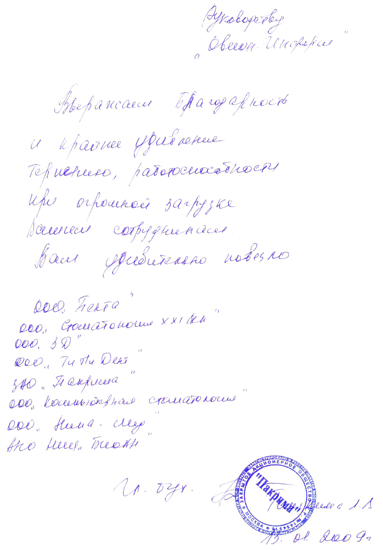 Руководству
"Овеон-Информ"
Выражаем благодарность
и крайнее удивление
терпению, работоспособности
при огромной загрузке
Вашим сотрудникам
Вам удивительно повезло
ООО "Пента"
ООО "Стоматология XXI век"
ООО "3Д"
ООО "ТиПи Дент"
ЗАО "Пакрима"
ООО "Компьютерная стоматология"
ООО "Нима-мед"
АНО НИЦ "Биоан"
Гл. бух.
"Пакрима"
2009г